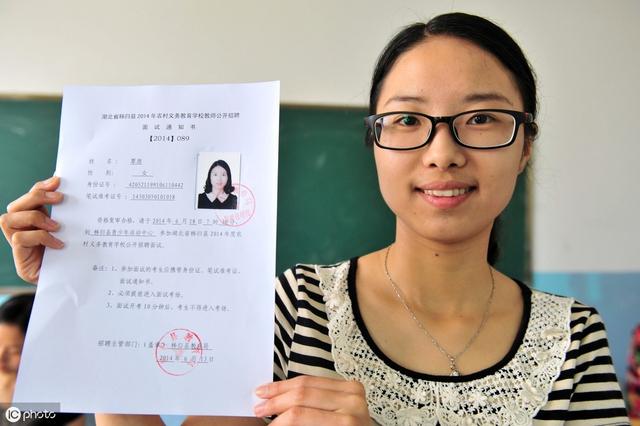 湖北省秭归县2014年农村义务教育学校教师公开招聘
面 试 通 知 书
【2014】089
姓 名：
性 别： 女
身份证号：
笔试准考证号：
资格复审合格，请于2014年6月28日7
到 秭归县青少年活动中心 参加湖北省秭归县2014年度农
村义务教育学校公开招聘面试。
备注：1、参加面试的考生应携带身份证、笔试准考证、
面试通知书。
2、必须提前进入面试考场。
3、面试开考10分钟后，考生不得进入考场。
招聘主管部门：（盖章）秭归县教育局
2014年6月
IC photo